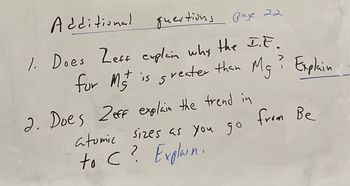 Additional questions Page 22
1. Does Zeff explain why the I.E.
for Mg⁺ is greater than Mg? Explain
2. Does Zeff explain the trend in
atomic sizes as you go from Be
to C? Explain.